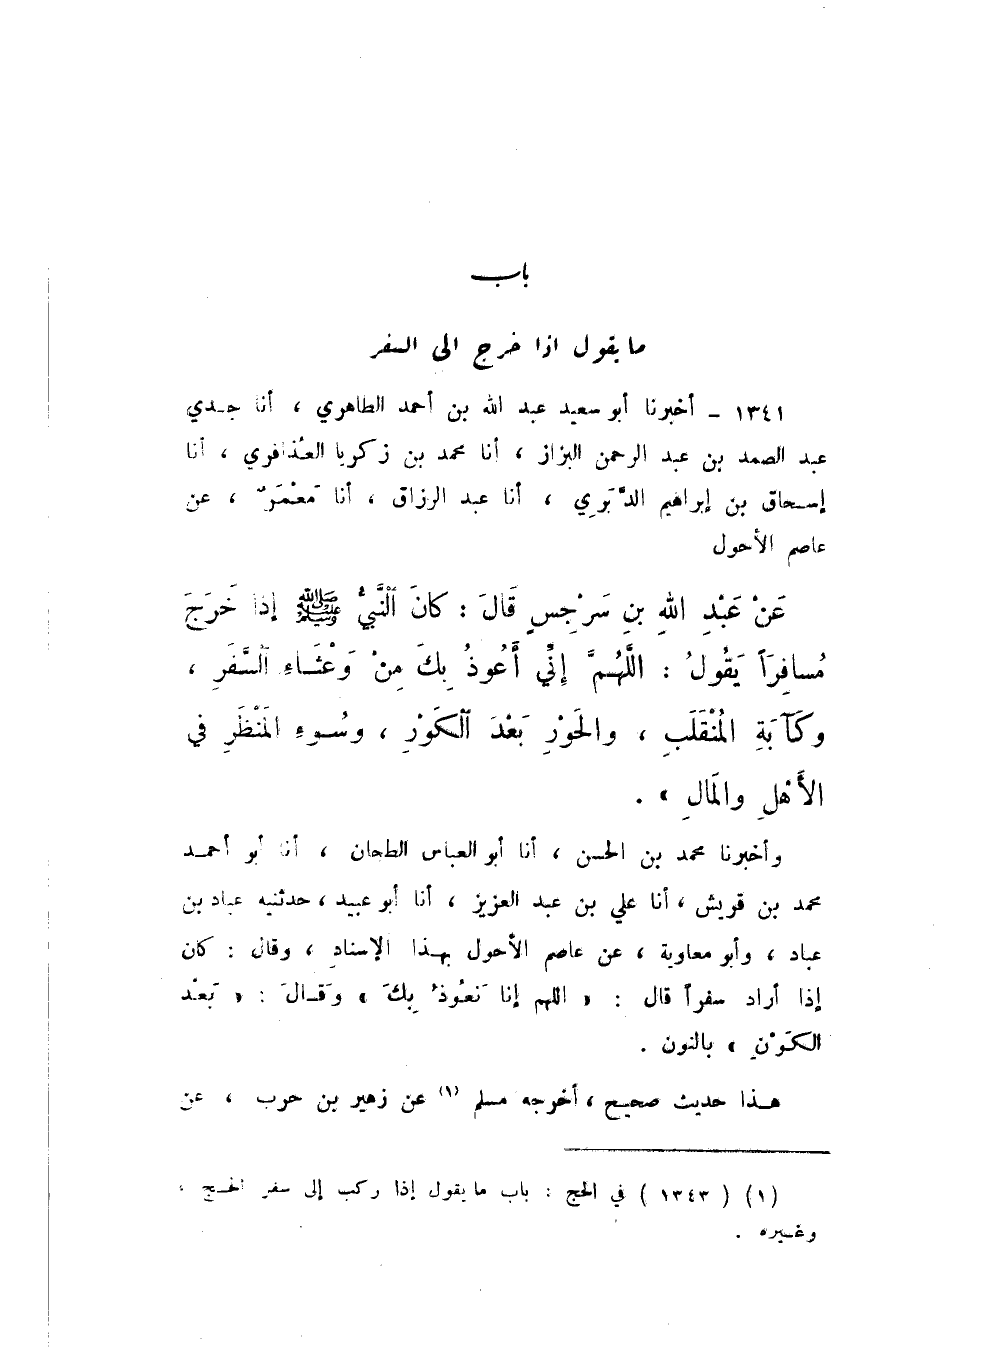 باب
ما يقول اذا خرج الى السفر
١٣٤١ ـ أخبرنا أبو سعيد عبد الله بن أحمد الطاهري ، أنا جـدي
عبد الصمد بن عبد الرحمن البزاز ، أنا محمد بن زكريا العُذافري ، أنا
إسـحاق بن إبراهيم الدَّبَري ، أنا عبد الرزاق ، أنا مَعْمَرٌ ، عن
عاصم الأحول
عَنْ عَبْدِ اللهِ بنِ سَرْجِسٍ قَالَ : كانَ ٱلنَّبيُّ ﷺ إذا خَرَجَ
مُسافِرَاً يَقُولُ : اللَّهُمَّ إِنِّي أَعُوذُ بِكَ مِنْ وَعْثَـاءِ ٱلسَّفَرِ ،
وكَآبَةِ المُنْقَلَبِ ، والحَوْرِ بَعْدَ ٱلْكَوْرِ ، وسُـوءِ المَنْظَرِ في
الأَهْلِ والمَالِ » .
وأخبرنا محمد بن الحسن ، أنا أبو العباس الطحان ، أنا أبو أحمـد
محمد بن قريش ، أنا علي بن عبد العزيز ، أنا أبو عبيد ، حدثنيه عباد بن
عباد ، وأبو معاوية ، عن عاصم الأحول بهـذا الإسناد ، وقال : كان
إذا أراد سفراً قال : « اللهم إنا نَعُوذُ بِكَ » وَقَـالَ : « بَعْدَ
الكَوْنِ » بالنون .
هـذا حديث صحيح ، أخرجه مسلم (١) عن زهير بن حرب ، عن
(١) ( ١٣٤٣ ) في الحج : باب ما يقول إذا ركب إلى سفر الحـج ،
وغـيره .